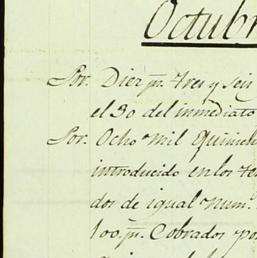 Octub
Por. Diez p.r tres y seis
el 30 del inmediato
Por. Ocho mil quinie
introducido en los te
dor de igual num.
100 p.r Cobrador po